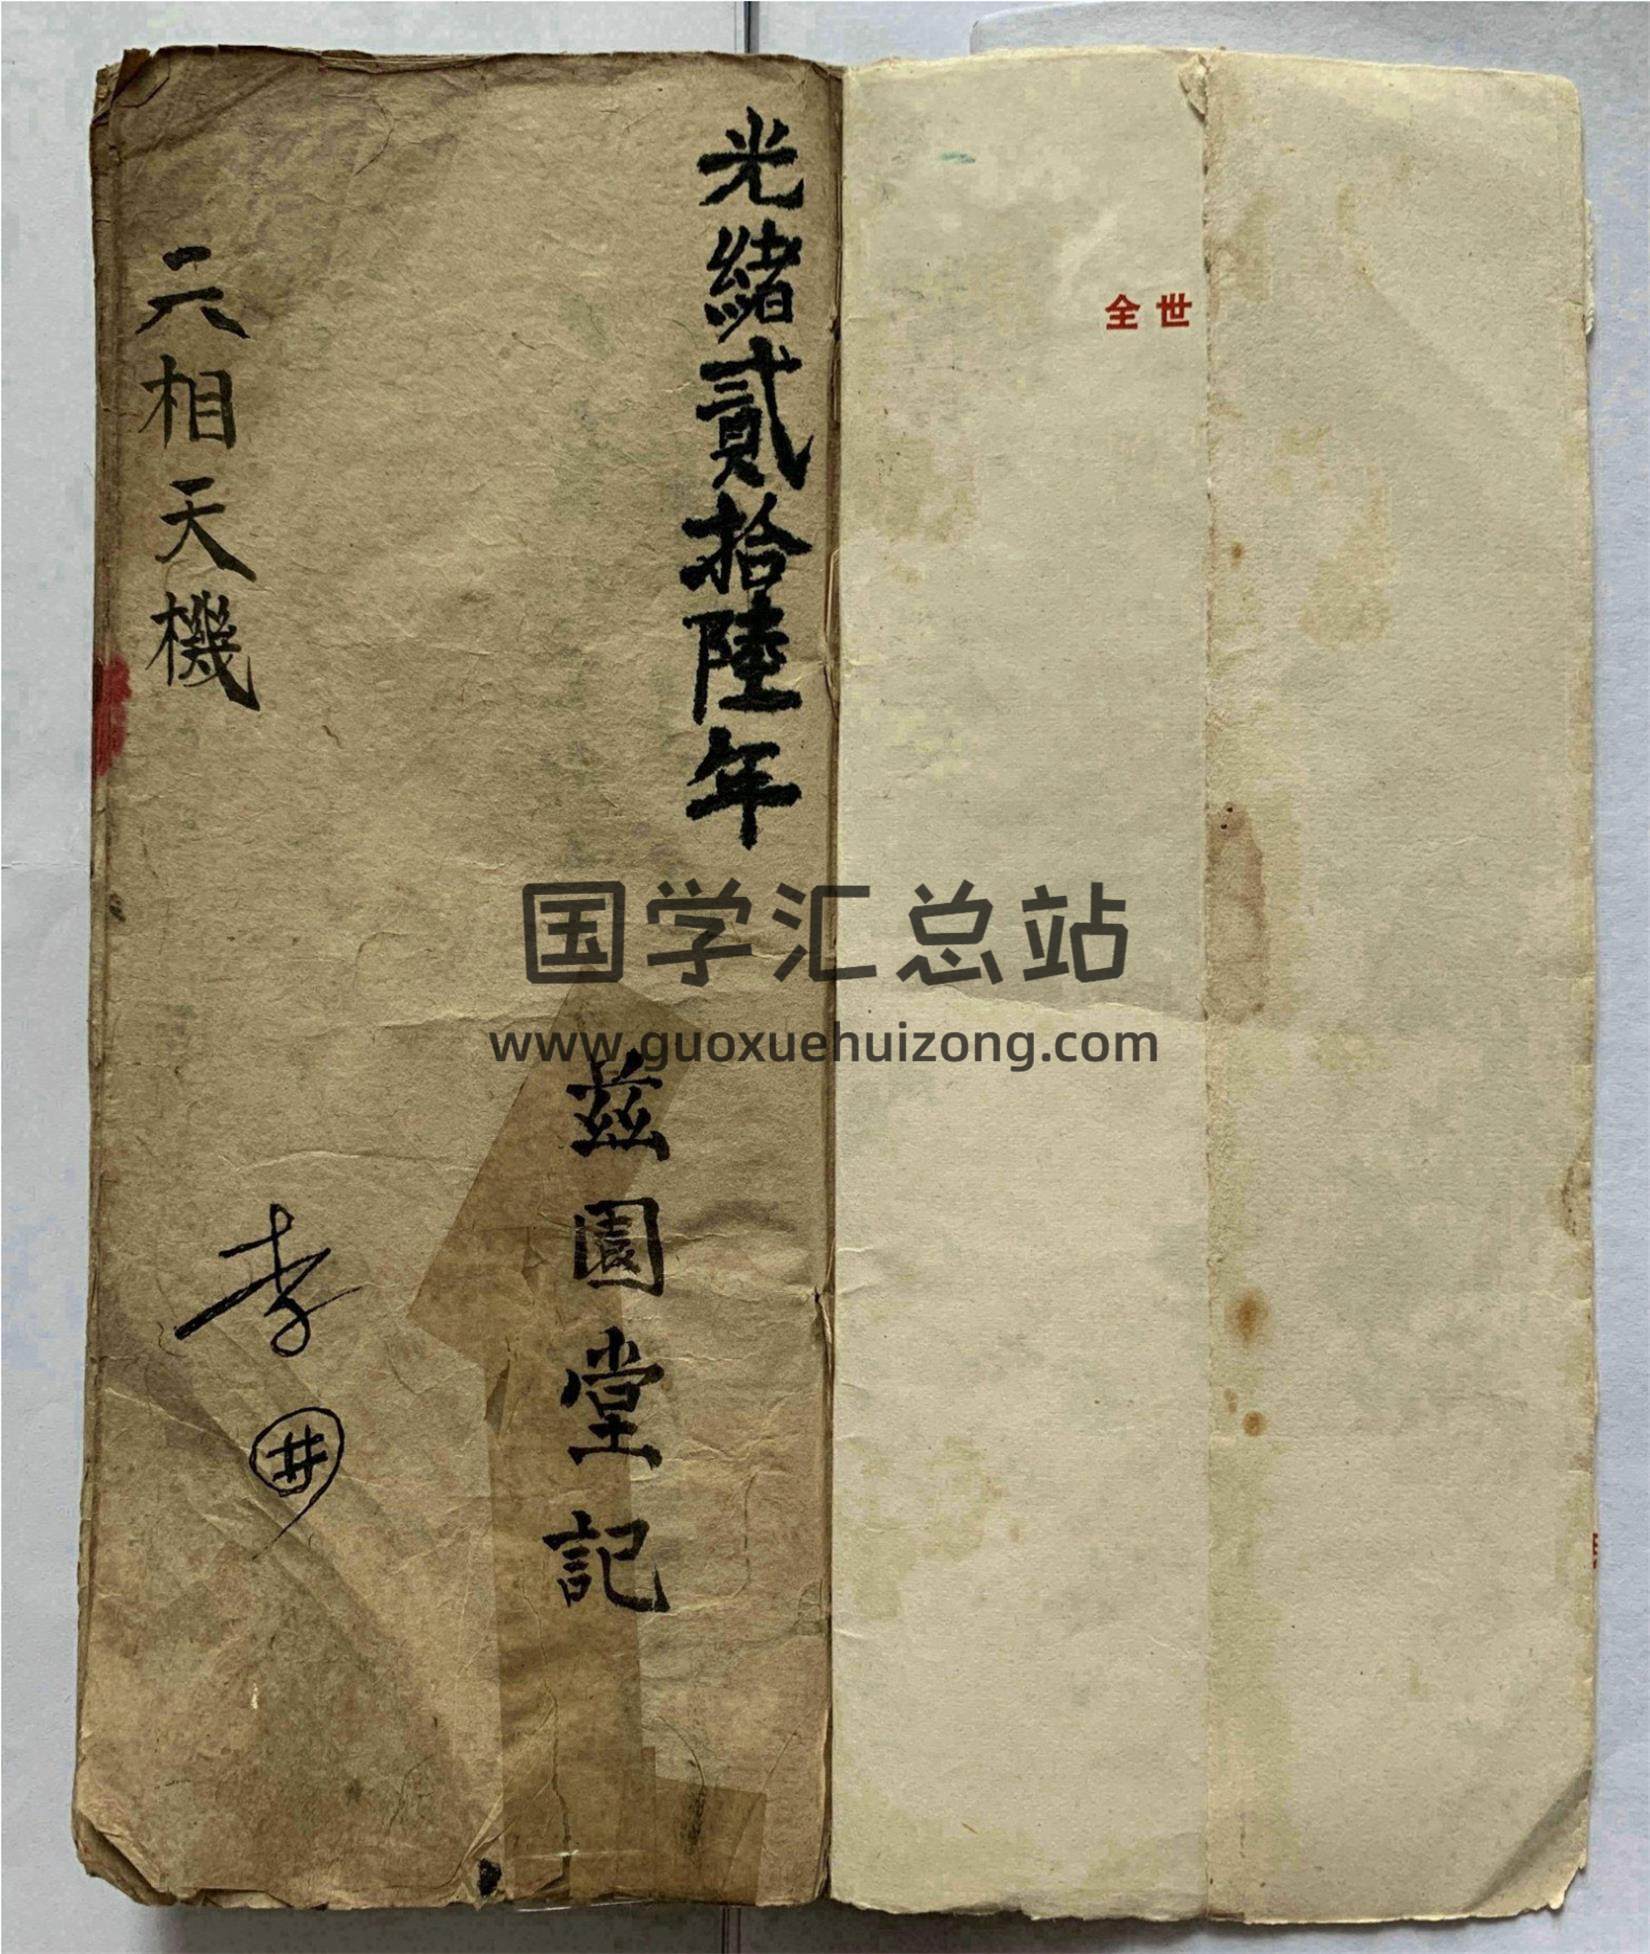 光緒貳拾陸年
茲園堂記
六相天機
李
井
全世
国学汇总站
www.guoxuehuizong.com